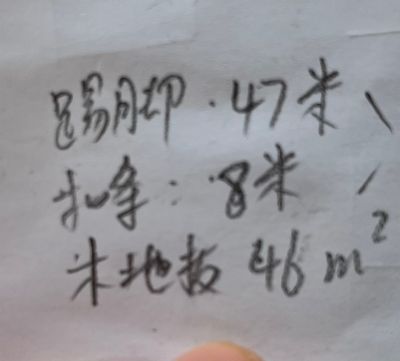 踢脚 · 47米、
扣条: 8米
木地板 46 m²